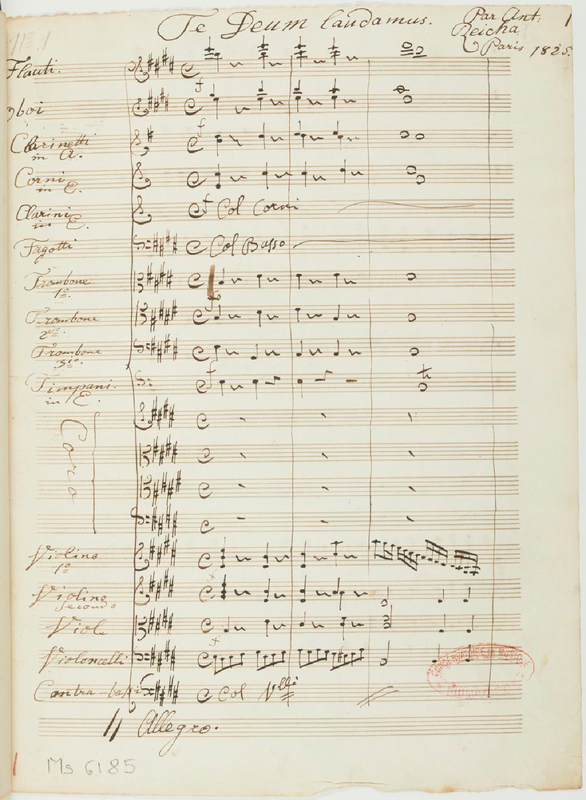 Te Deum laudamus.
Par Ant.
Reicha
Paris 1825.
1
Flauti.
Oboi
Clarinetti
in A.
Corni
in E.
Clarini
in E.
Col Corni
Fagotti
Col Basso
Trombone
1º.
Trombone
2do.
Trombone
3º.
Timpani.
in E.
Coro
Violino
1º
Violino
Secondo
Viole
Violoncelli
Contra-bassi
Col Vlli
Allegro.
Ms 6185